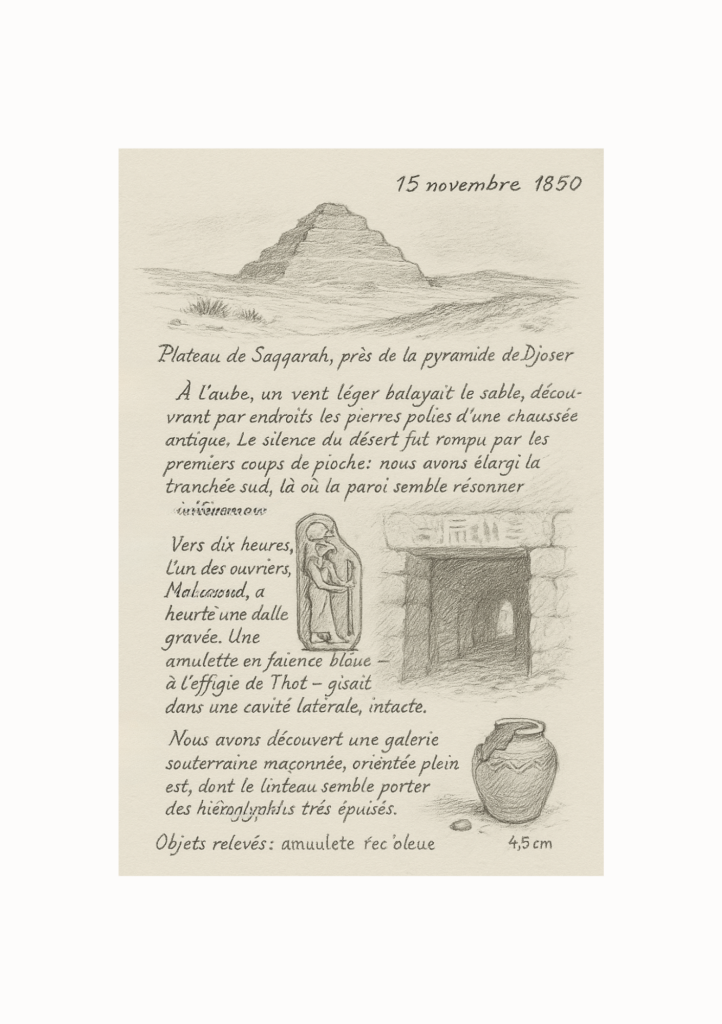 15 novembre 1850
Plateau de Saqqarah, près de la pyramide de Djoser
À l'aube, un vent léger balayait le sable, décou-
vrant par endroits les pierres polies d'une chaussée
antique. Le silence du désert fut rompu par les
premiers coups de pioche: nous avons élargi la
tranchée sud, là où la paroi semble résonner
Vers dix heures,
l'un des ouvriers,
a
heurte une dalle
gravée. Une
amulette en faience bloue –
à l'effigie de Thot – gisait
dans une cavité latérale, intacte.
Nous avons découvert une galerie
souterraine maçonnée, orientée plein
est, dont le linteau semble porter
des trés épuisés.
Objets relevés: amuulete
4,5 cm